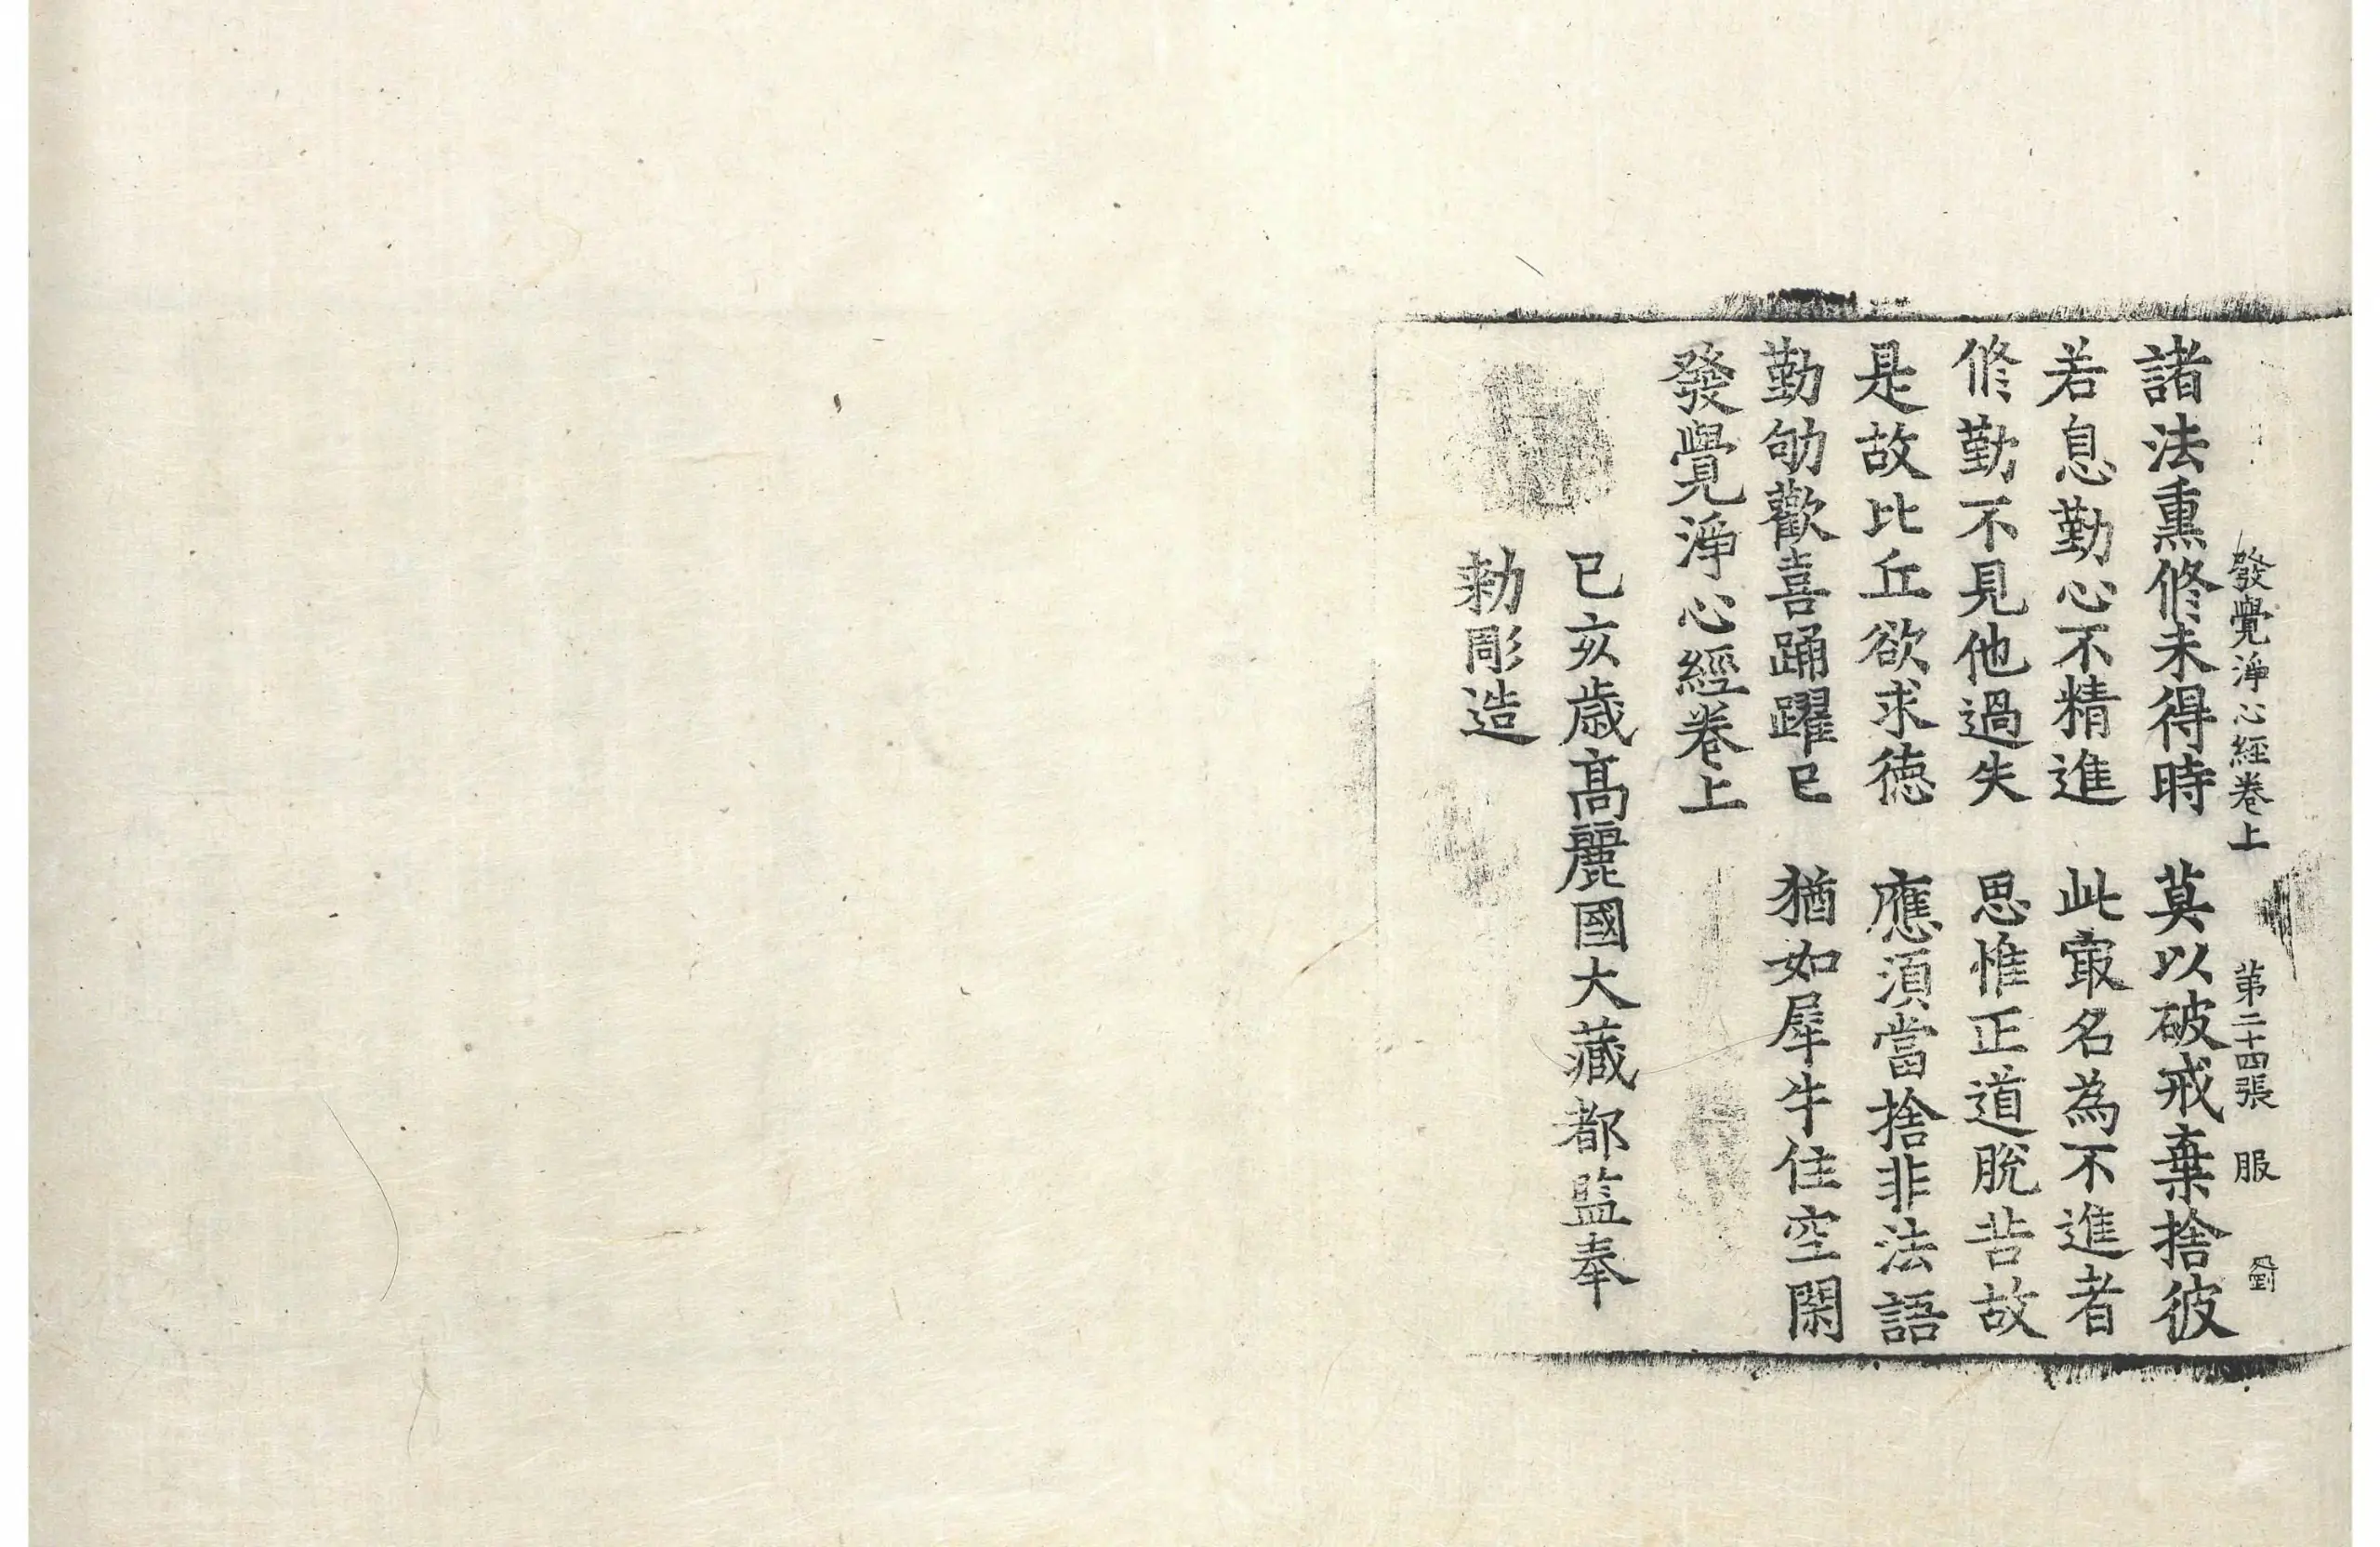 發覺淨心經卷上 第二十四張 服
諸法熏修未得時 莫以破戒棄捨彼
若息勤心不精進 此㝡名為不進者
修勤不見他過失 思惟正道脫苦故
是故比丘欲求德 應須當捨非法語
勤劬歡喜踊躍已 猶如犀牛住空閑
發覺淨心經卷上
己亥歲高麗國大藏都監奉
勅彫造